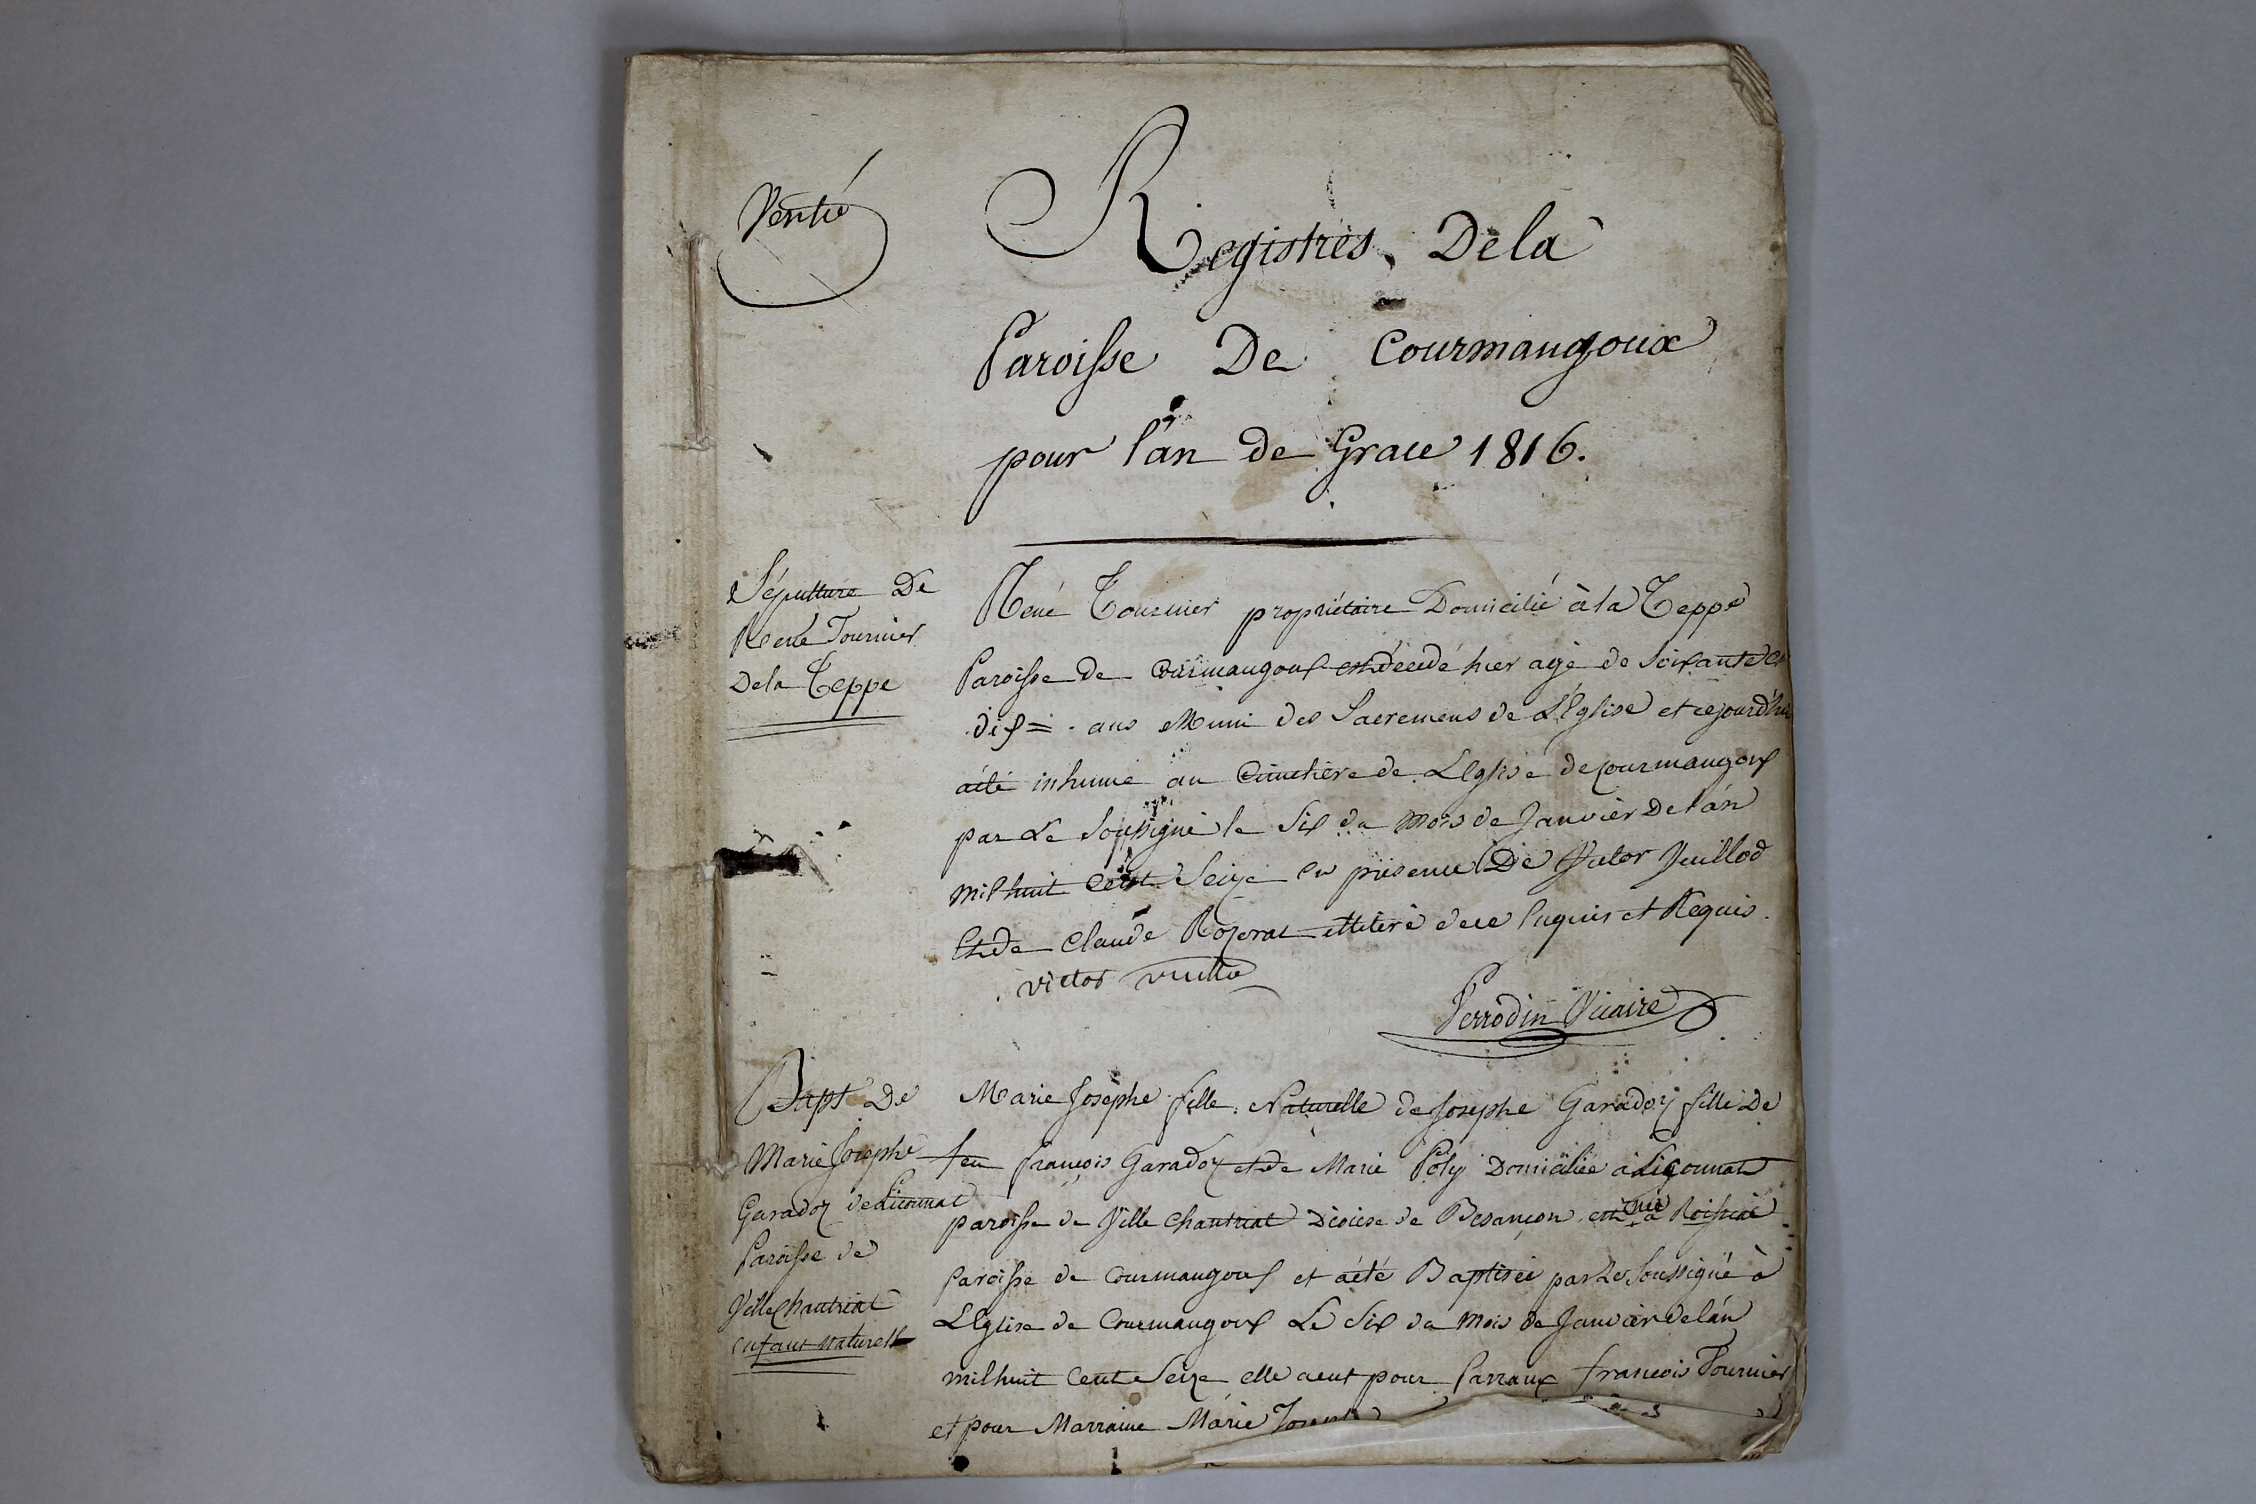 Vérifié
Registres De la
Paroisse De Courmangoux
pour l'an de Grace 1816.
Sépulture De
René Tournier
De la Teppe
René Tournier propriétaire Domicilié à la Teppe
Paroisse de Courmangoux est décédé hier agé de soixante et
dix = ans Muni des Sacremens de L'Eglise et cejourd'hui
a été inhumé au Cimetière de L'Eglise de Courmangoux
par Le Soussigné le Six du Mois de Janvier De l'an
mil huit Cent Seize en présence De Victor Vuillod
Et de Claude Rozerat illitéré de ce Enquis et Requis.
victor vuillo
Perrodin Vicaire
Bapt De
Marie Josephe
Garadoz de Liconnat
Paroisse de
Ville chantriat
enfant Naturelle
Marie Josephe fille Naturelle de Josephe Garadoz fille De
feu françois Garadoz et de Marie Poly Domiciliée à Liconnat
paroisse de Ville chantriat Diocèse de Besançon est née à Roissiat
Paroisse de Courmangoux et a été Baptisée par Le Soussigné à
L'Eglise de Courmangoux Le Six du Mois de Janvier de l'an
mil huit Cent Seize elle a eut pour Parrain françois Tournier
et pour Marraine Marie